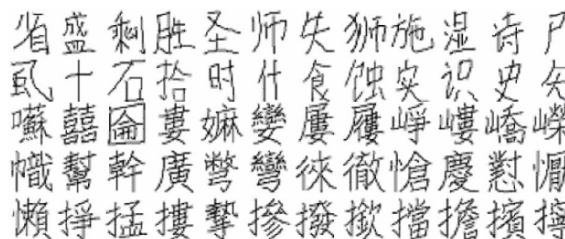 省盛剩胜圣师失狮施湿诗尸
虱十石拾时什食蚀实识史矢
嚇囍圇婁嫲孌屢屨崢嶁嶠嶸
幟幫幹廣彆彎徠徹愴慶懟懨
懶掙掹摟摯摻撥撳擋擔擯擰